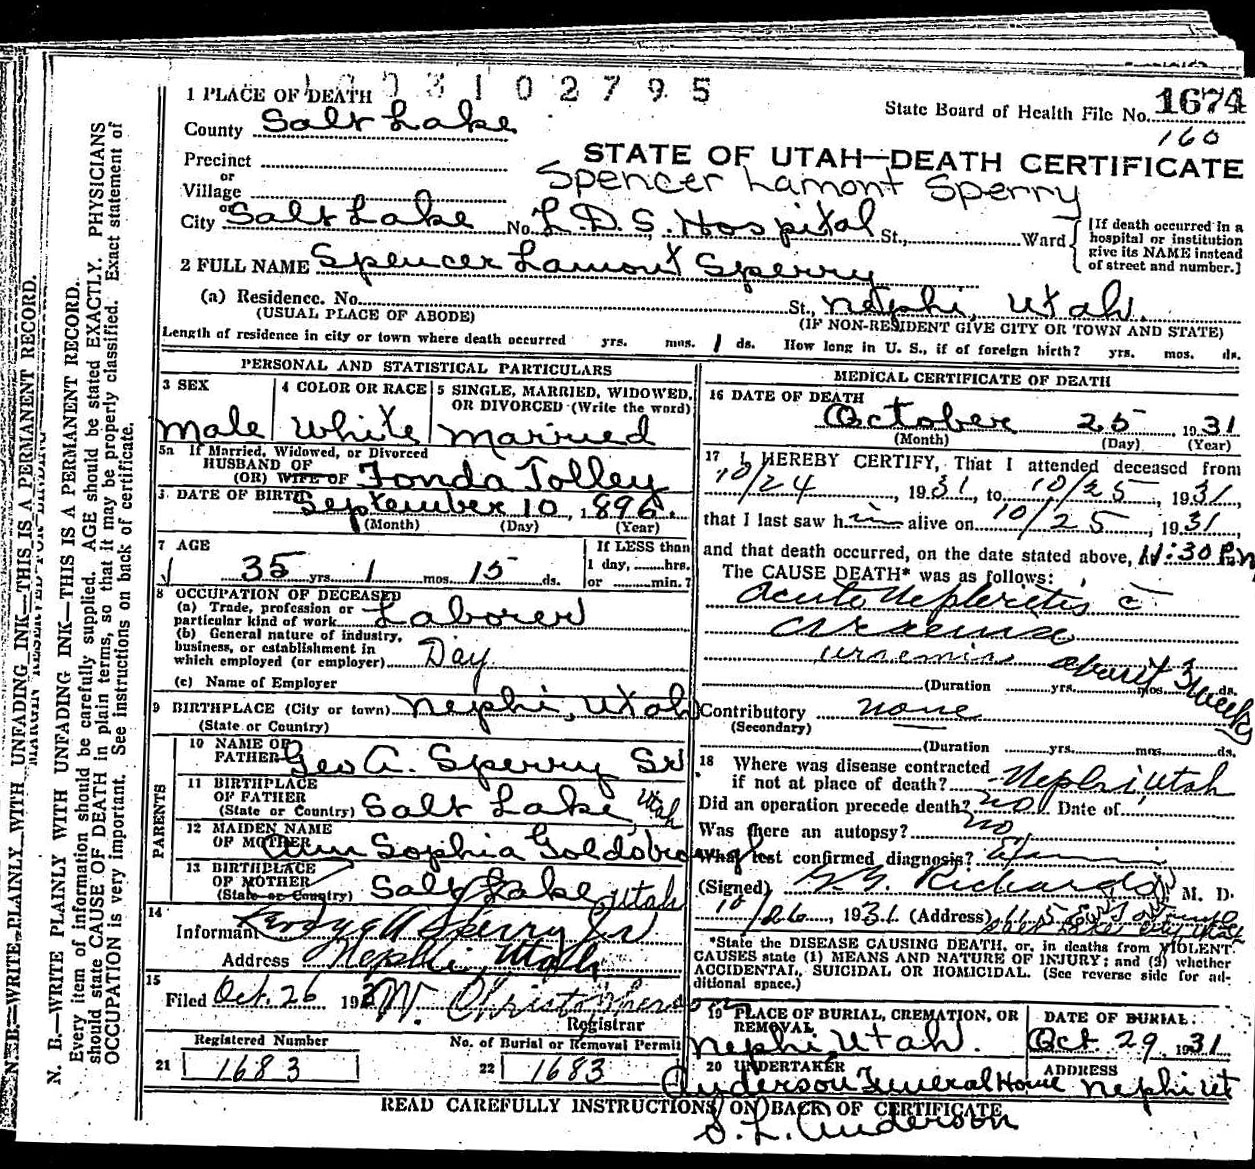 1 PLACE OF DEATH 193102795
State Board of Health File No. 1674
County Salt Lake
160
STATE OF UTAH—DEATH CERTIFICATE
Precinct
or
Village
Spencer Lamont Sperry
or
City Salt Lake No. L.D.S. Hospital St., Ward
[If death occurred in a
hospital or institution
give its NAME instead
of street and number.]
2 FULL NAME Spencer Lamont Sperry
(a) Residence. No. St., Nephi, Utah.
(USUAL PLACE OF ABODE) (IF NON-RESIDENT GIVE CITY OR TOWN AND STATE)
Length of residence in city or town where death occurred yrs. mos. 1 ds. How long in U. S., if of foreign birth? yrs. mos. ds.
PERSONAL AND STATISTICAL PARTICULARS
3 SEX
male
4 COLOR OR RACE
white
5 SINGLE, MARRIED, WIDOWED,
OR DIVORCED (Write the word)
married
5a If Married, Widowed, or Divorced
HUSBAND OF
(OR) WIFE OF Fonda Tolley
DATE OF BIRTH
September 10, 1896.
(Month) (Day) (Year)
7 AGE
35 yrs. 1 mos. 15 ds.
If LESS than
1 day, hrs.
or min.?
8 OCCUPATION OF DECEASED
(a) Trade, profession or
particular kind of work Laborer
(b) General nature of industry,
business, or establishment in
which employed (or employer) Day
(c) Name of Employer
9 BIRTHPLACE (City or town) Nephi, Utah
(State or Country)
PARENTS
10 NAME OF
FATHER Geo A. Sperry Sr
11 BIRTHPLACE
OF FATHER
(State or Country) Salt Lake, Utah
12 MAIDEN NAME
OF MOTHER Ann Sophia Goldsbrough
13 BIRTHPLACE
OF MOTHER
(State or Country) Salt Lake, Utah
14
Informant George A Sperry Jr
Address Nephi Utah
15
Filed Oct. 26 193 W. Christopherson
Registrar
Registered Number
21 1683
No. of Burial or Removal Permit
22 1683
MEDICAL CERTIFICATE OF DEATH
16 DATE OF DEATH
October 25 1931
(Month) (Day) (Year)
17 I HEREBY CERTIFY, That I attended deceased from
10/24, 1931, to 10/25, 1931,
that I last saw him alive on 10/25, 1931,
and that death occurred, on the date stated above, 11:30 P.m
The CAUSE DEATH* was as follows:
Acute Nephritis c
uraemia
uraemia about 3 weeks
(Duration yrs. mos. ds.
Contributory none
(Secondary)
(Duration yrs. mos. ds.
18 Where was disease contracted
if not at place of death? Nephi, Utah
Did an operation precede death? no Date of
Was there an autopsy? no
What test confirmed diagnosis?
(Signed) G. G. Richards, M. D.
10/26, 1931 (Address)
*State the DISEASE CAUSING DEATH, or, in deaths from VIOLENT
CAUSES state (1) MEANS AND NATURE OF INJURY; and (2) whether
ACCIDENTAL, SUICIDAL OR HOMICIDAL. (See reverse side for ad-
ditional space.)
19 PLACE OF BURIAL, CREMATION, OR
REMOVAL
Nephi, Utah.
DATE OF BURIAL:
Oct. 29, 1931
20 UNDERTAKER
Anderson Funeral Home
ADDRESS
Nephi Ut
S. L. Anderson
READ CAREFULLY INSTRUCTIONS ON BACK OF CERTIFICATE
N. B.—WRITE PLAINLY WITH UNFADING INK—THIS IS A PERMANENT RECORD.
MARGIN RESERVED FOR BINDING
N. B.—WRITE PLAINLY WITH UNFADING INK—THIS IS A PERMANENT RECORD.
Every item of information should be carefully supplied. AGE should be stated EXACTLY. PHYSICIANS
should state CAUSE OF DEATH in plain terms, so that it may be properly classified. Exact statement of
OCCUPATION is very important. See instructions on back of certificate.